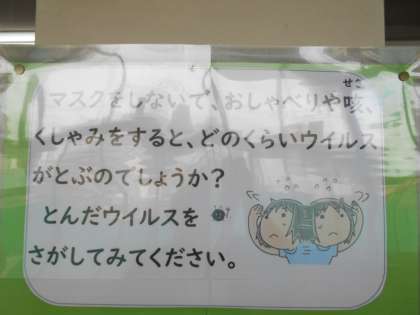 マスクをしないで、おしゃべりや咳、
せき
くしゃみをすると、どのくらいウイルス
がとぶのでしょうか？
とんだウイルスを
さがしてみてください。